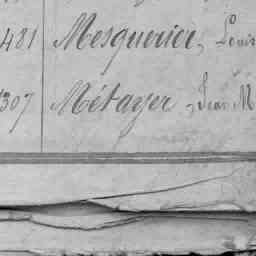 481 Mesquerier, Louis
1307 Métayer, Jean M